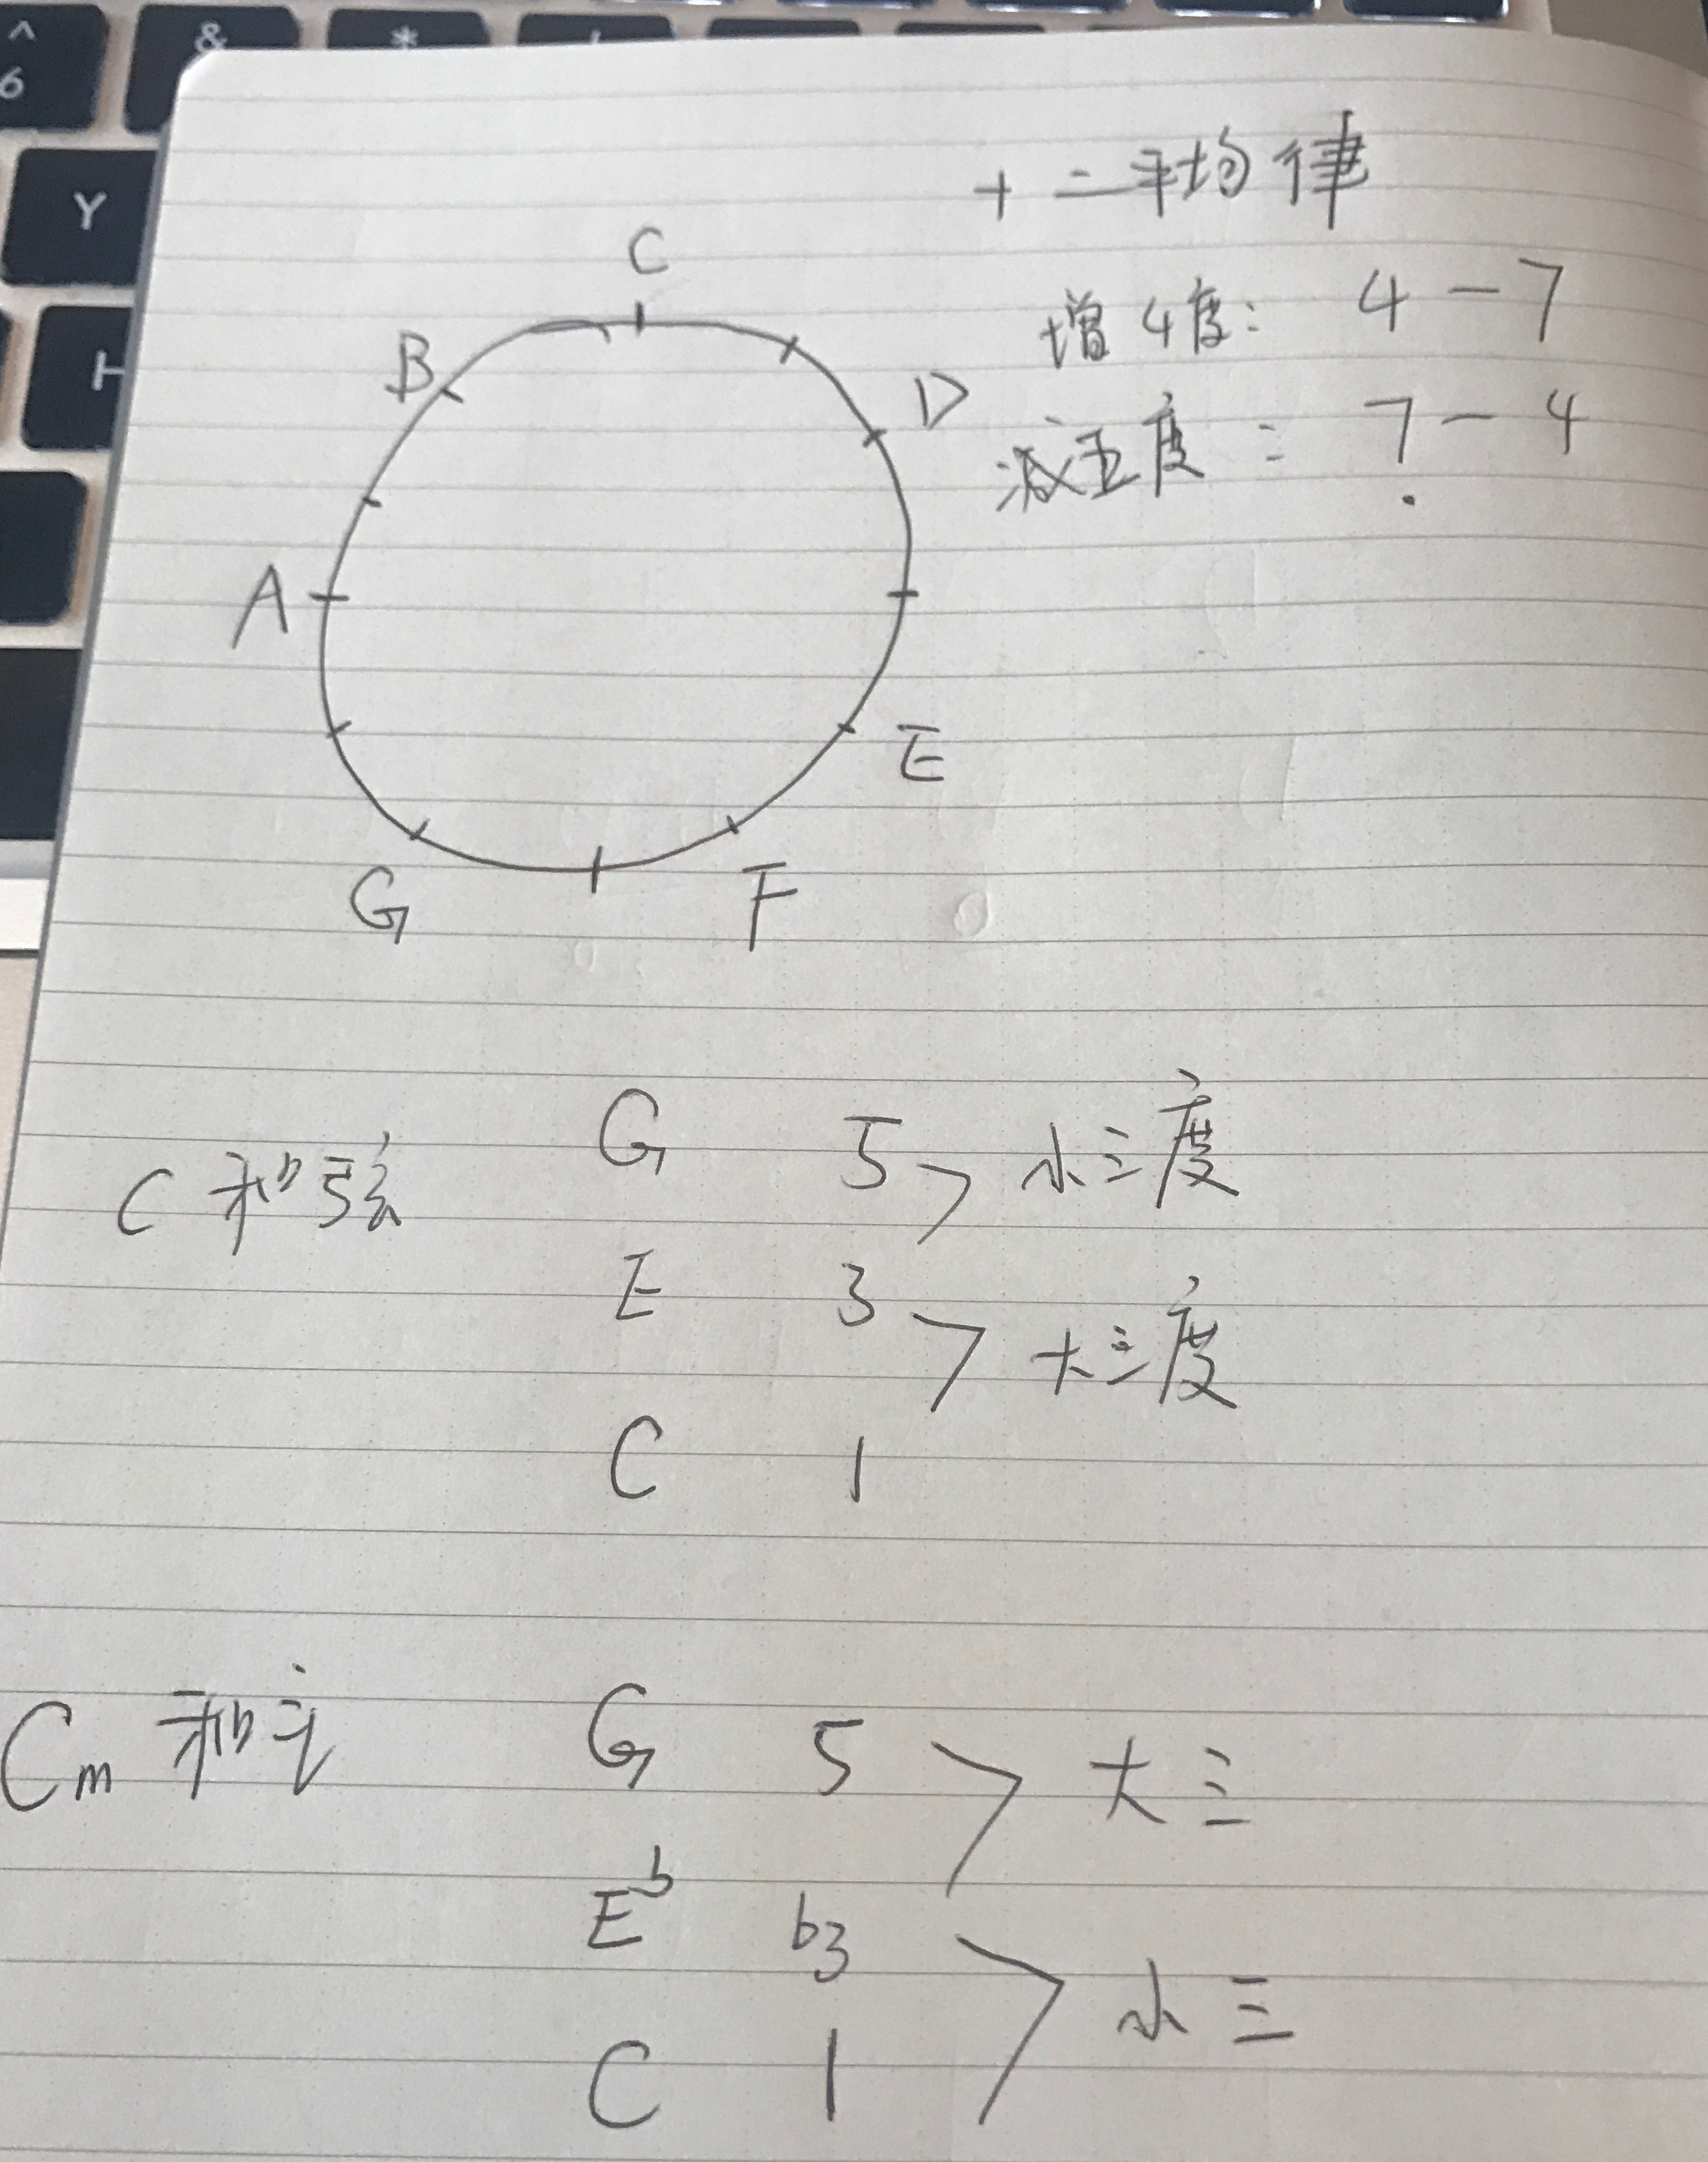 ^ & *
6
Y
H
十二平均律
增4度: 4-7
减五度: 7̣-4
C
B
D
A
E
G
F
C和弦
G 5
小三度
E 3
大三度
C 1
Cm 和
G 5
大三
E♭ b3
小三
C 1